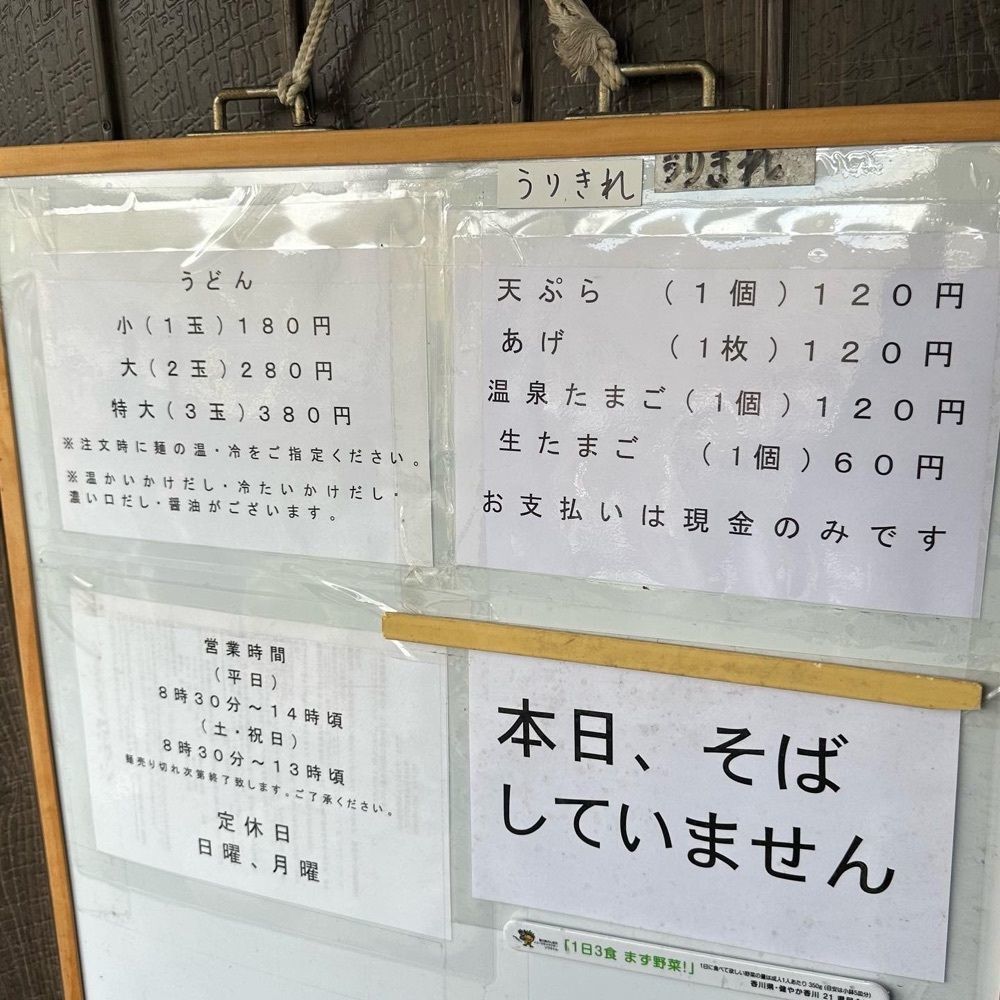 うりきれ
うりきれ
うどん
小(1玉)180円
大(2玉)280円
特大(3玉)380円
※注文時に麺の温・冷をご指定ください。
※温かいかけだし・冷たいかけだし・
濃い口だし・醤油がございます。
天ぷら (1個)120円
あげ (1枚)120円
温泉たまご(1個)120円
生たまご (1個)60円
お支払いは現金のみです
営業時間
(平日)
8時30分~14時頃
(土・祝日)
8時30分~13時頃
麺売り切れ次第終了致します。ご了承ください。
定休日
日曜、月曜
本日、そば
していません
「1日3食 まず野菜!」
1日に食べて欲しい野菜の量は成人1人あたり 350g (目安は小鉢5皿分)
香川県・健やか香川 21